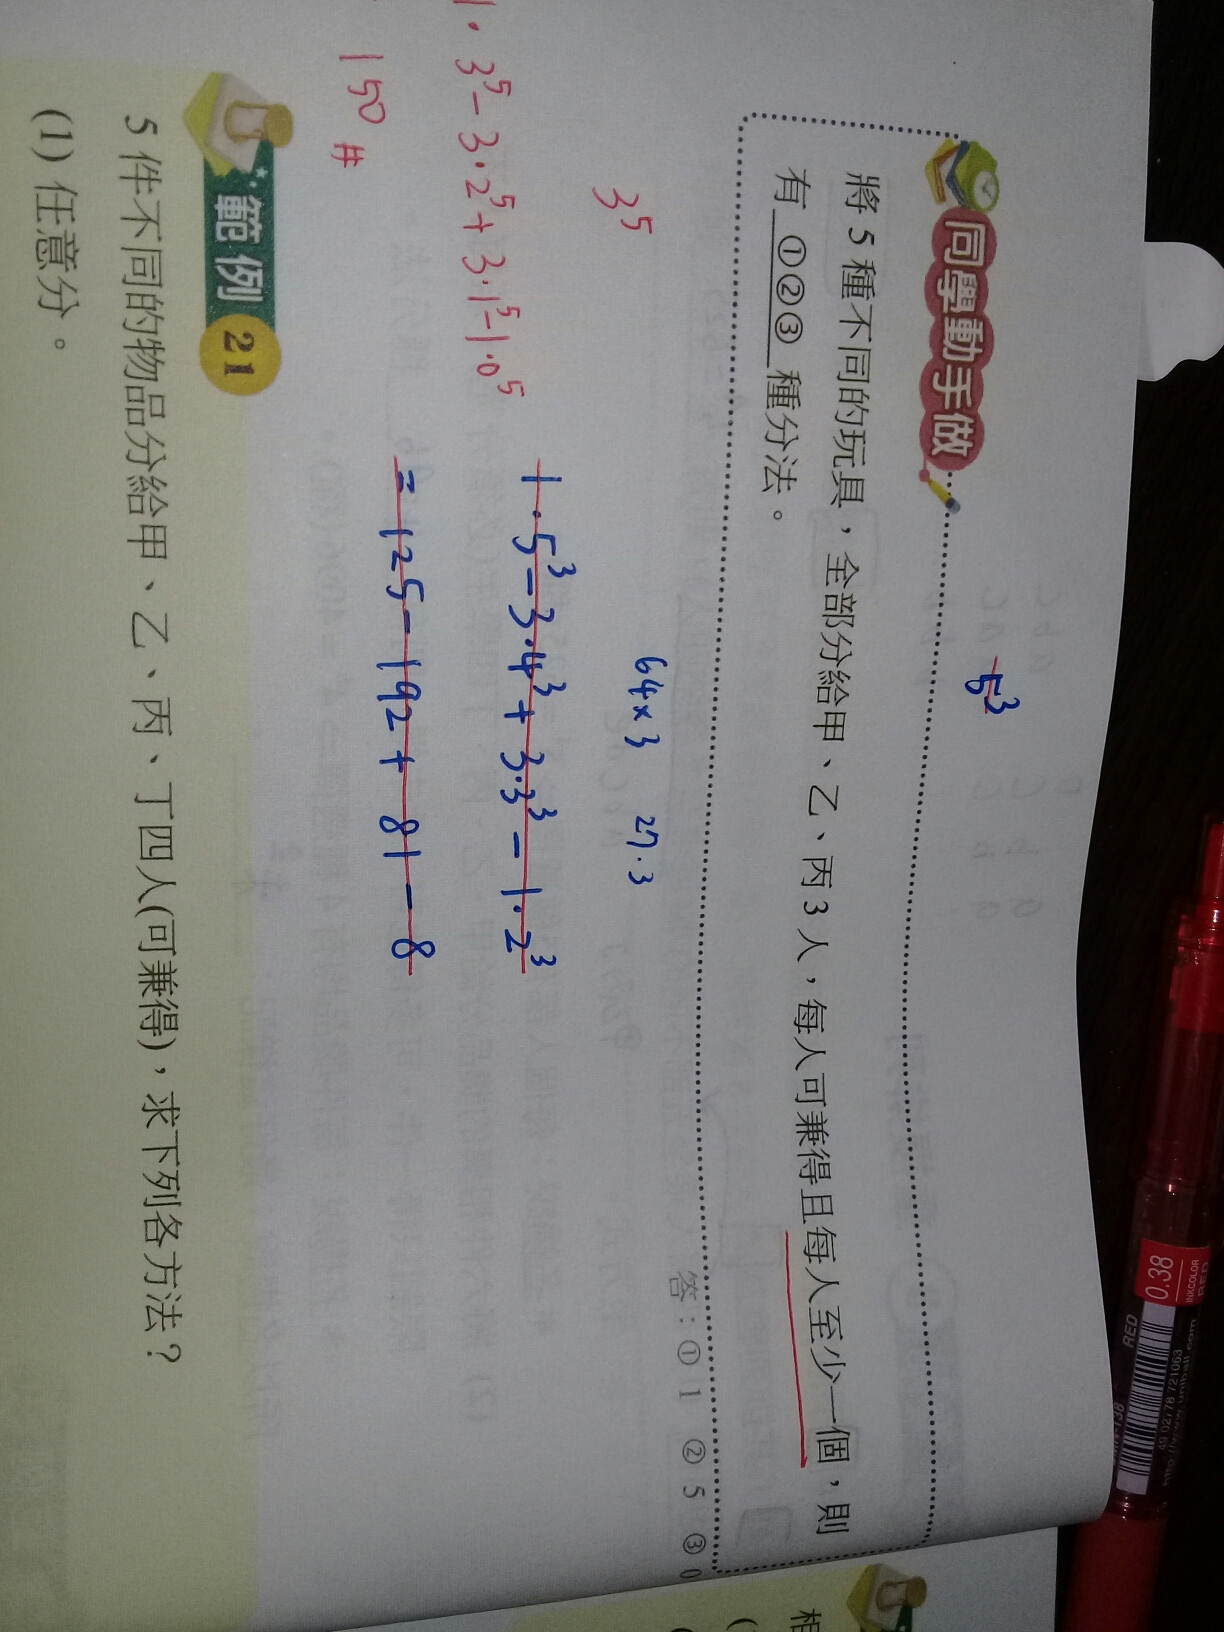 5³
同學動手做
將 5 種不同的玩具,全部分給甲、乙、丙 3 人,每人可兼得且每人至少一個,則
有 ①②③ 種分法。
答:① 1 ② 5 ③ 0
3⁵
64×3 27·3
1·5³-3·4³+3·3³-1·2³
1·3⁵-3·2⁵+3·1⁵-1·0⁵
=125-192+81-8
150 #
範例 21
5 件不同的物品分給甲、乙、丙、丁四人(可兼得),求下列各方法?
(1) 任意分。
相
0.38
INKCOLOR
RED
RED
49 02778 721063